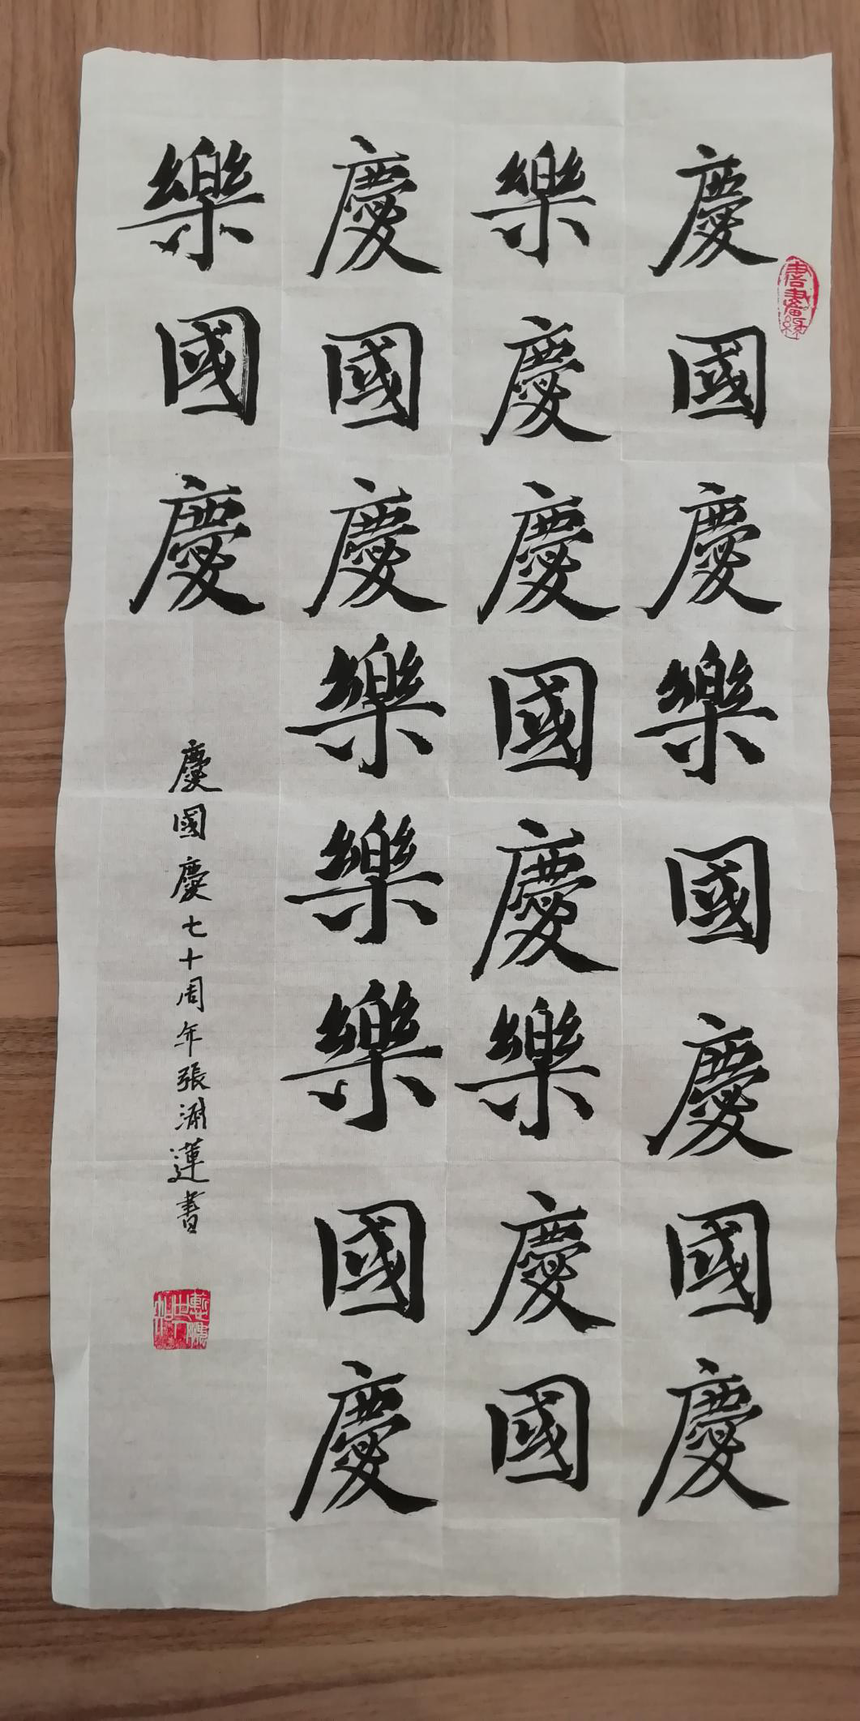 慶國慶樂國慶國慶
樂慶慶國慶樂慶國
慶國慶樂樂樂國慶
樂國慶
慶國慶七十周年張淵蓮書